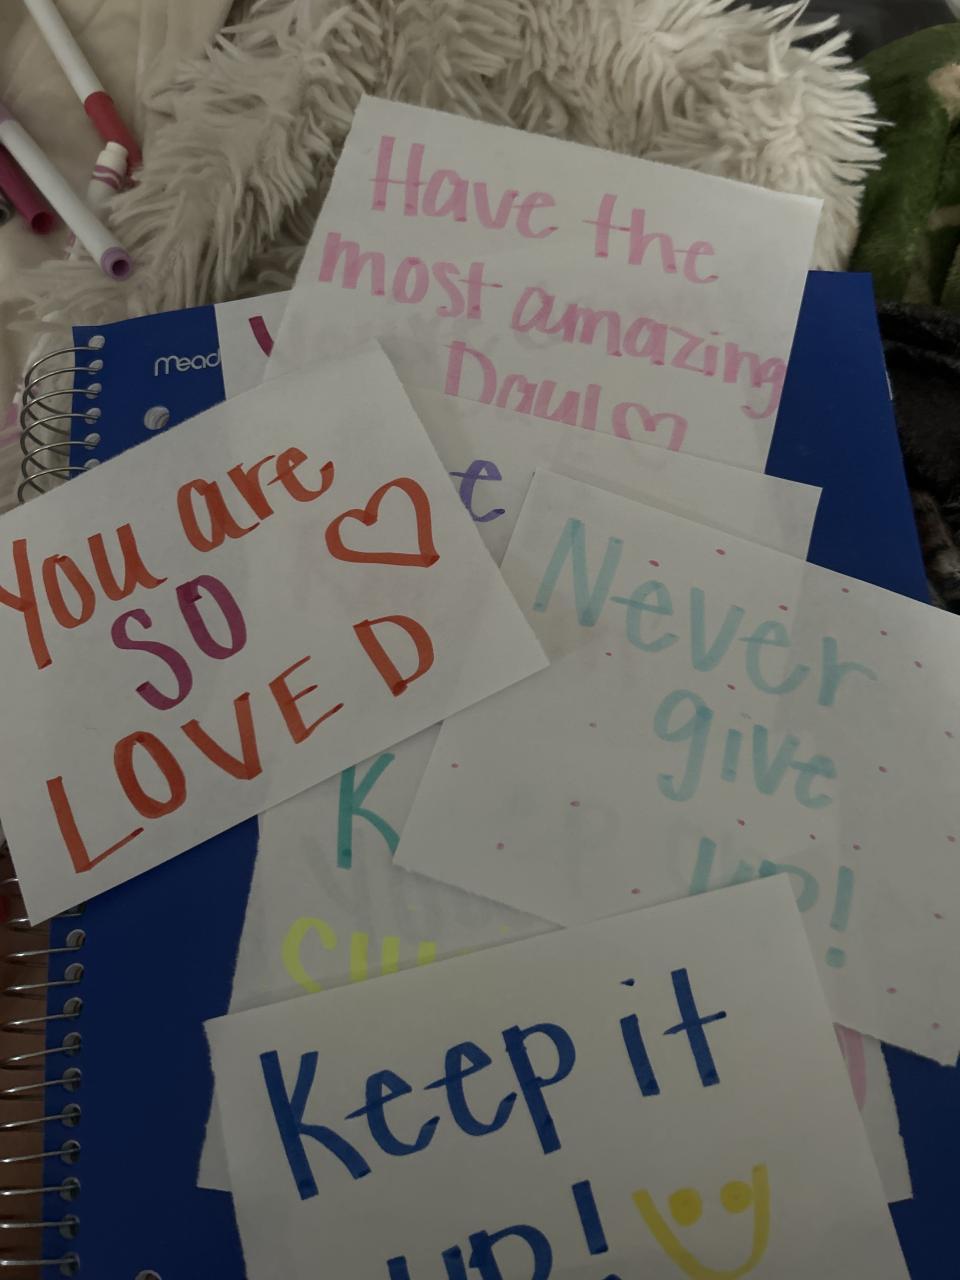 Have the
most amazing
Day! ♡
Mead
e
You are
SO ♡
LOVED
Never
give
up!
K
Keep it
up!